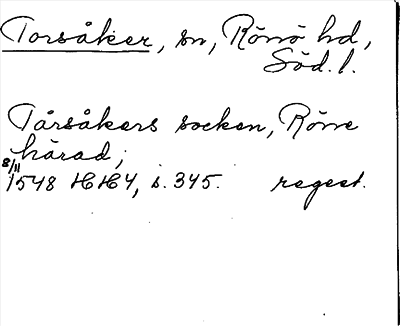 Torsåker, sn, Rönö hd,
Söd. l.
Tårsåkers socken, Röne
härad;
8/11
1548 HH4, s. 345. regest.